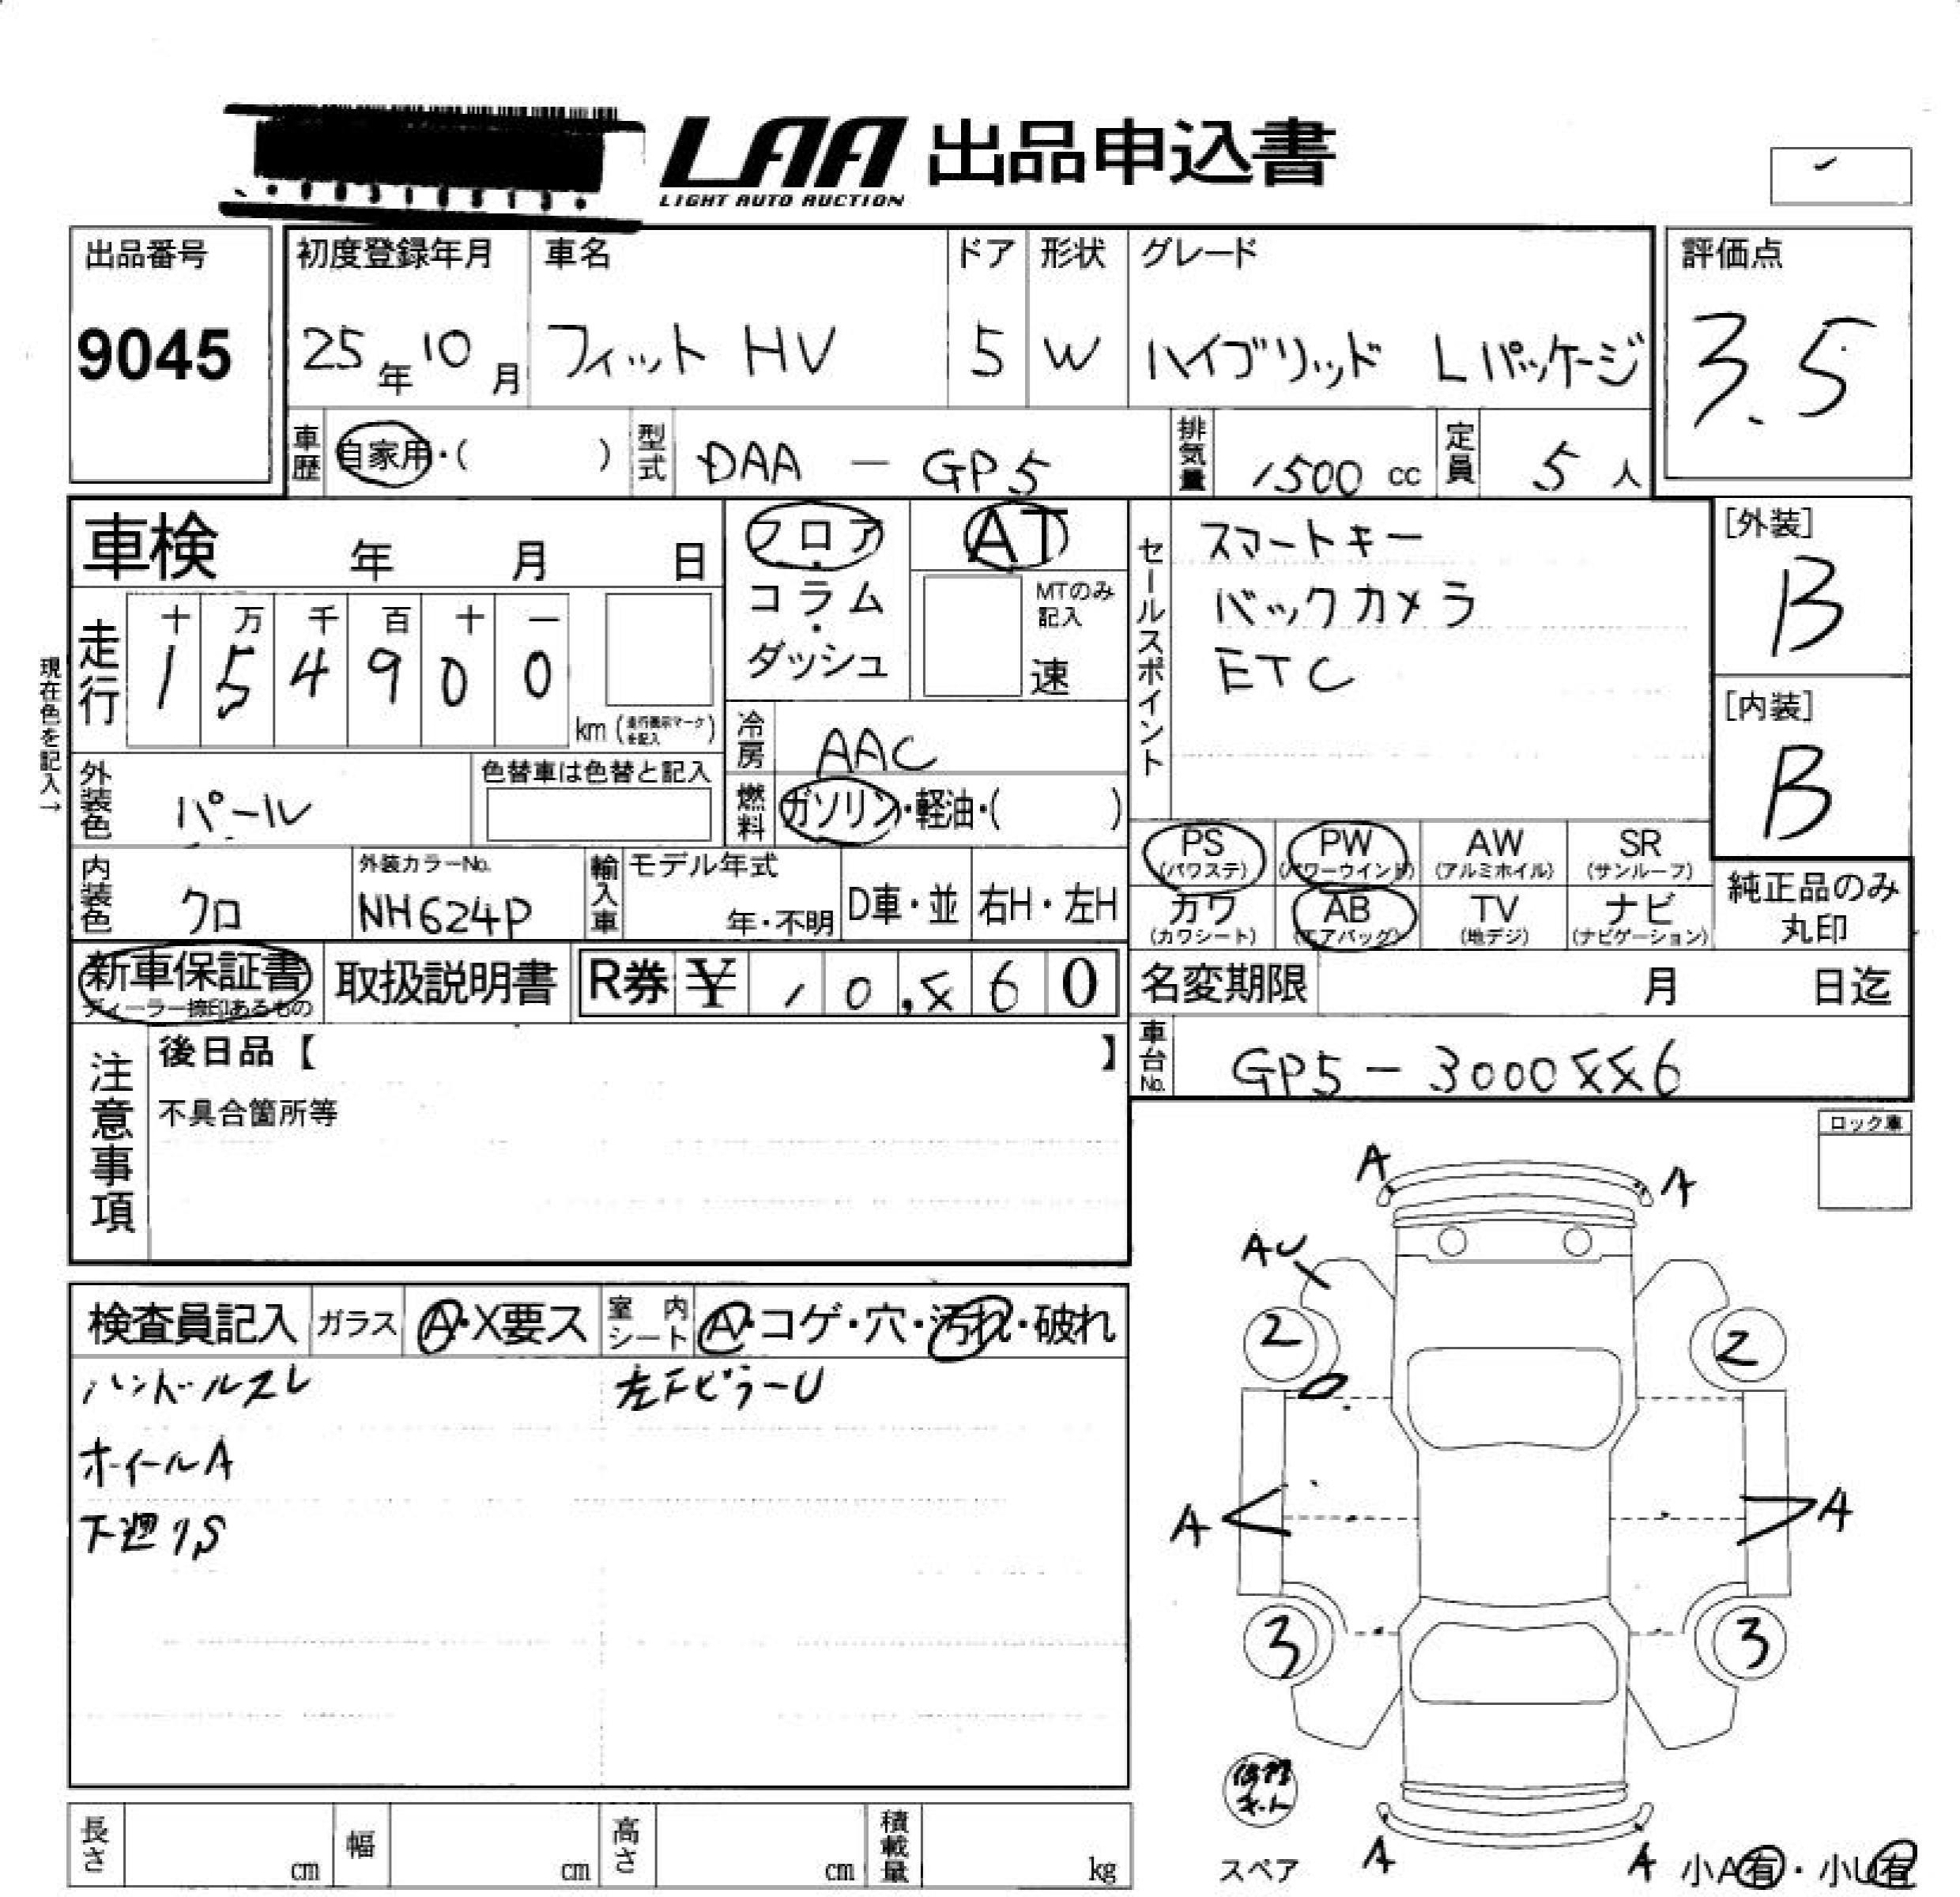 LAA 出品申込書
LIGHT AUTO AUCTION
出品番号
9045
初度登録年月 車名 ドア 形状 グレード
25年10月 フィット HV 5 W ハイブリッド Lパッケージ
評価点
3.5
車歴 自家用・( ) 型式 DAA - GP5 排気量 1500 cc 定員 5 人
車検 年 月 日
フロア・コラム・ダッシュ
AT
MTのみ記入
速
セールスポイント
スマートキー
バックカメラ
ETC
[外装]
B
[内装]
B
現在色を記入→
走行
十 万 千 百 十 一
1 5 4 9 0 0
km (走行表示マークを記入)
冷房 AAC
外装色 パール
色替車は色替と記入
燃料 ガソリン・軽油・( )
PS (パワステ) PW (パワーウインド) AW (アルミホイル) SR (サンルーフ)
カワ (カワシート) AB (エアバッグ) TV (地デジ) ナビ (ナビゲーション)
純正品のみ丸印
内装色 クロ
外装カラーNo.
NH624P
輸入車 モデル年式 年・不明 D車・並 右H・左H
新車保証書
ディーラー捺印あるもの
取扱説明書
R券 ¥ 10,860
名変期限 月 日迄
車台No. GP5-3000886
注意事項
後日品【 】
不具合箇所等
ロック車
検査員記入 ガラス A・X要ス 室内シート A・コゲ・穴・汚れ・破れ
ハンドルスレ 左FピラーU
ホイールA
下廻りS
A A
AU
2 2
A A
3 3
修理キット
スペア
A A
小A有・小U有
長さ cm 幅 cm 高さ cm 積載量 kg